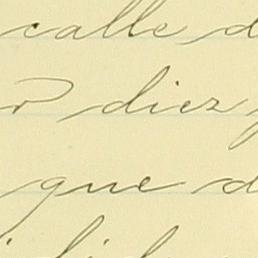 calle d
diez
que d